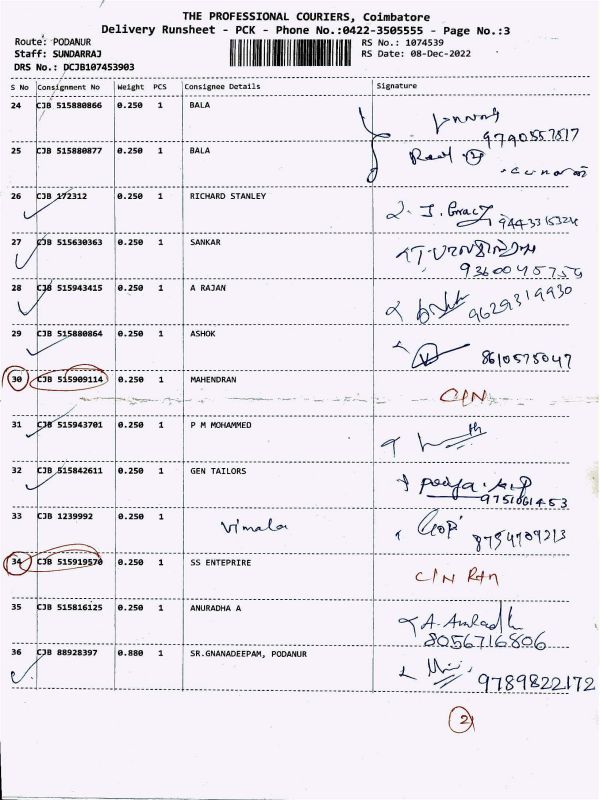 THE PROFESSIONAL COURIERS, Coimbatore
Delivery Runsheet - PCK - Phone No.:0422-3505555 - Page No.:3
Route: PODANUR RS No.: 1074539
Staff: SUNDARRAJ RS Date: 08-Dec-2022
DRS No.: DCJB107453903
S No Consignment No Weight PCS Consignee Details Signature
24 CJB 515880866 0.250 1 BALA
9790557817
25 CJB 515880877 0.250 1 BALA
26 CJB 172312 0.250 1 RICHARD STANLEY
9443315324
27 CJB 515630363 0.250 1 SANKAR
28 CJB 515943415 0.250 1 A RAJAN 9629319930
29 CJB 515880864 0.250 1 ASHOK
8610575047
30 CJB 515909114 0.250 1 MAHENDRAN
C/N
31 CJB 515943701 0.250 1 P M MOHAMMED
32 CJB 515842611 0.250 1 GEN TAILORS
9751061453
33 CJB 1239992 0.250 1 Vimala Gopi
34 CJB 515919570 0.250 1 SS ENTEPRIRE
C/N
35 CJB 515816125 0.250 1 ANURADHA A
8056716806
36 CJB 88928397 0.880 1 SR.GNANADEEPAM, PODANUR
9789822172
2